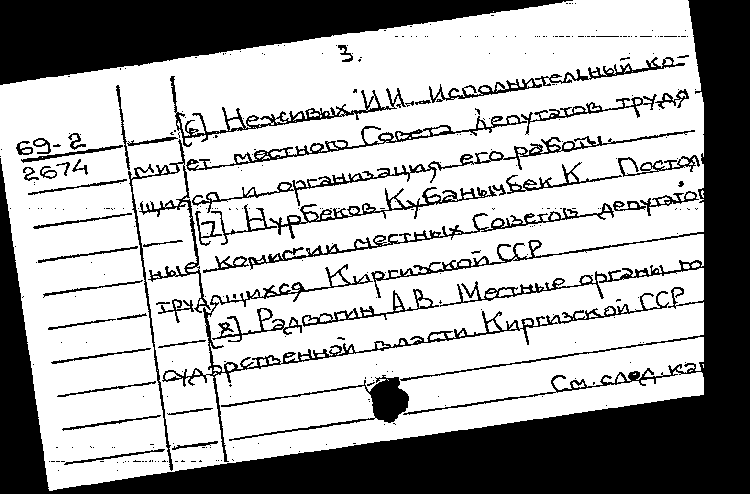 3.
69-2
2674
[6]. Неживых, И.И. Исполнительный ко-
митет местного Совета депутатов трудя-
щихся и организация его работы.
[7]. Нурбеков, Кубанычбек К. Постоян
ные комиссии местных Советов депутатов
трудящихся Киргизской ССР
[8]. Радвогин, А.В. Местные органы го
сударственной власти Киргизской ССР
См. след. кар